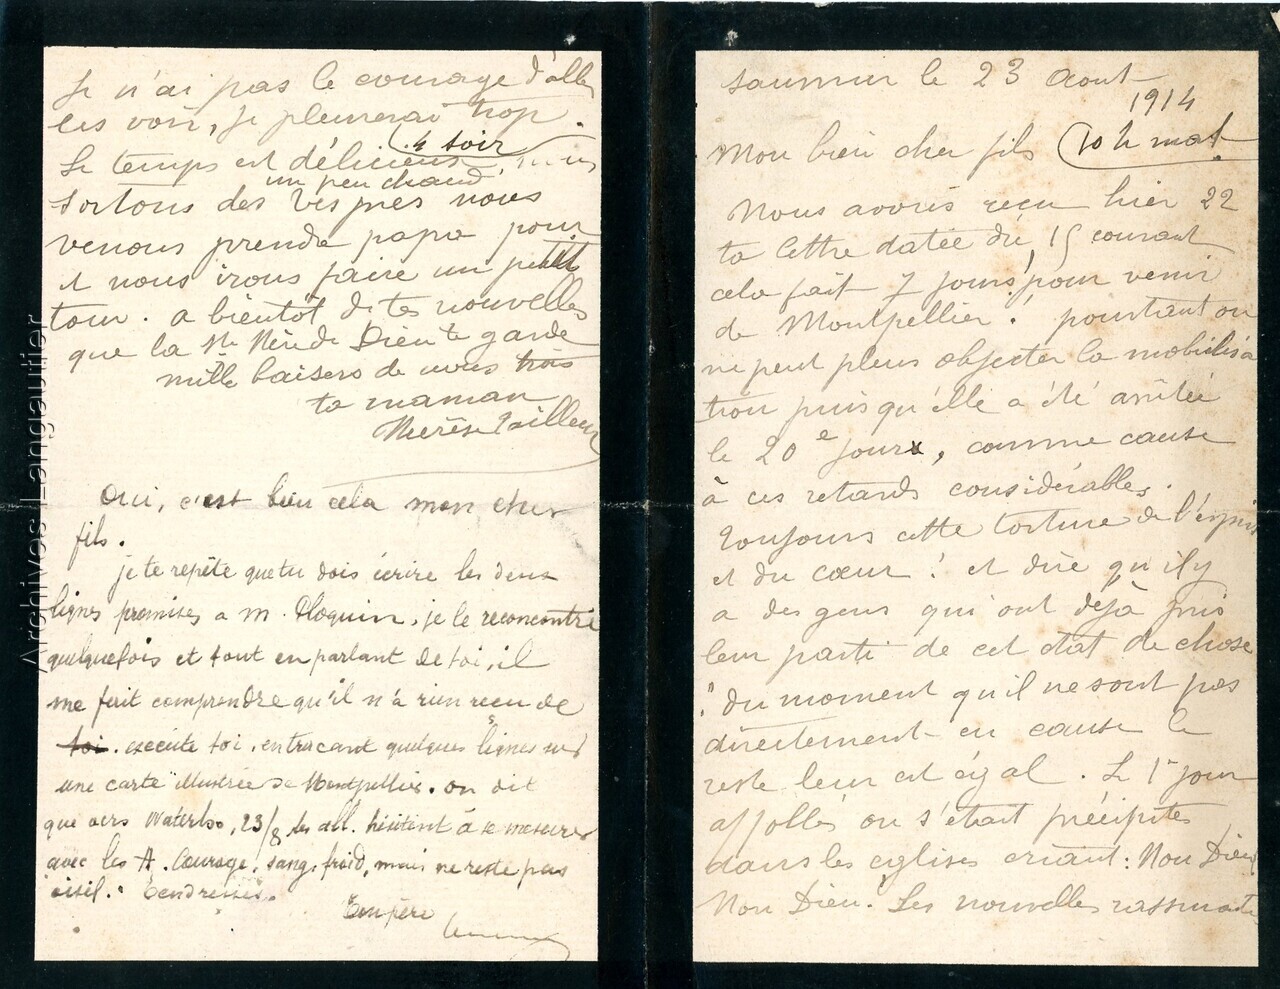 Saumur le 23 Aout
1914
Mon bien cher fils (10 h mat.
Nous avons reçu hier 22
ta lettre datée du 15 courant
cela fait 7 jours pour venir
de Montpellier! pourtant on
ne peut plus objecter la mobilisa
tion puisqu'elle a été arrêtée
le 20e jour, comme cause
à ces retards considérables.
Toujours cette torture de l'esprit
et du cœur! et dire qu'il y
a des gens qui ont déjà pris
leur parti de cet état de chose
"du moment qu'il ne sont pas
directement en cause le
reste leur est égal. Le 1er jour
affollés on s'était précipités
dans les églises criant: Mon Dieu
Mon Dieu! Les nouvelles rassurantes
Je n'ai pas le courage d'aller
les voir, je pleurerai trop.
(4 soir
Le temps est délicieux
un peu chaud,
sortons des Vespres nous
venons prendre papa pour
et nous irons faire un petit
tour. a bientôt de tes nouvelles
que la Ste Mère de Dieu te garde
mille baisers de nous trois
ta maman
Thérèse
Oui, c'est bien cela mon cher
fils.
je te répète que tu dois écrire les deux
lignes promises a M. je le rencontre
quelquefois et tout en parlant de toi, il
me fait comprendre qu'il n'a rien reçu de
toi. exécute toi, en traçant quelques lignes sur
une carte illustrée de Montpellier. on dit
que vers Waterloo, 23/8 les all. hésitent à se mesurer
avec les A. Courage, sang-froid, mais ne reste pas
oisif. Tendresses.
Ton père
Archives Langautier